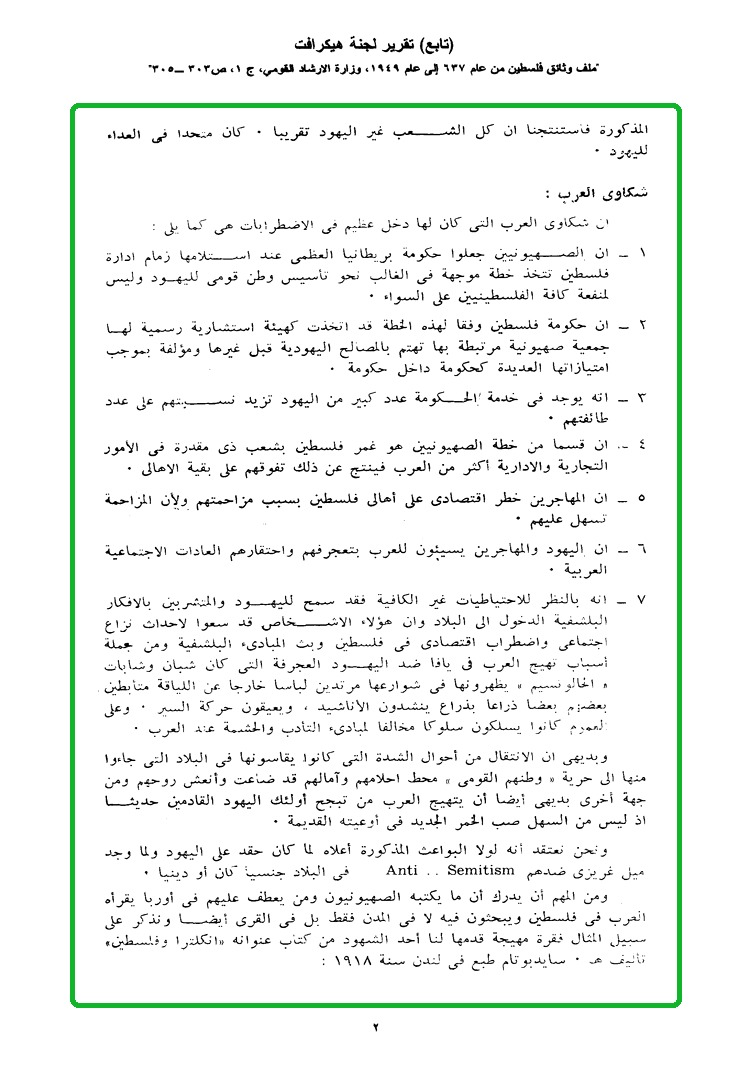 (تابع) تقرير لجنة هيكرافت
"ملف وثائق فلسطين من عام ٦٣٧ إلى عام ١٩٤٩، وزارة الارشاد القومي، ج ١، ص٣٠٣ ــ ٣٠٥"
المذكورة فاستنتجنا ان كل الشعب غير اليهود تقريبا ٠ كان متحدا فى العداء
لليهود ٠
شكاوى العرب :
ان شكاوى العرب التى كان لها دخل عظيم فى الاضطرابات هى كما يلى :
١ ــ ان الصهيونيين جعلوا حكومة بريطانيا العظمى عند استلامها زمام ادارة
فلسطين تتخذ خطة موجهة فى الغالب نحو تأسيس وطن قومى لليهود وليس
لمنفعة كافة الفلسطينيين على السواء ٠
٢ ــ ان حكومة فلسطين وفقا لهذه الخطة قد اتخذت كهيئة استشارية رسمية لها
جمعية صهيونية مرتبطة بها تهتم بالمصالح اليهودية قبل غيرها ومؤلفة بموجب
امتيازاتها العديدة كحكومة داخل حكومة ٠
٣ ــ انه يوجد فى خدمة الحكومة عدد كبير من اليهود تزيد نسبتهم على عدد
طائفتهم ٠
٤ ــ ان قسما من خطة الصهيونيين هو غمر فلسطين بشعب ذى مقدرة فى الأمور
التجارية والادارية أكثر من العرب فينتج عن ذلك تفوقهم على بقية الاهالى ٠
٥ ــ ان المهاجرين خطر اقتصادى على أهالى فلسطين بسبب مزاحمتهم ولأن المزاحمة
تسهل عليهم ٠
٦ ــ ان اليهود والمهاجرين يسيئون للعرب بتعجرفهم واحتقارهم العادات الاجتماعية
العربية ٠
٧ ــ انه بالنظر للاحتياطيات غير الكافية فقد سمح لليهود والمتشربين بالافكار
البلشفية الدخول الى البلاد وان هؤلاء الاشخاص قد سعوا لاحداث نزاع
اجتماعى واضطراب اقتصادى فى فلسطين وبث المبادىء البلشفية ومن جملة
أسباب تهيج العرب فى يافا ضد اليهود العجرفة التى كان شبان وشابات
« الحالوتسيم » يظهرونها فى شوارعها مرتدين لباسا خارجا عن اللياقة متأبطين
بعضهم بعضا ذراعا بذراع ينشدون الأناشيد ، ويعيقون حركة السير ٠ وعلى
العموم كانوا يسلكون سلوكا مخالفا لمبادىء التأدب والحشمة عند العرب ٠
وبديهى ان الانتقال من أحوال الشدة التى كانوا يقاسونها فى البلاد التى جاءوا
منها الى حرية « وطنهم القومى » محط احلامهم وآمالهم قد ضاعت وأنعش روحهم ومن
جهة أخرى بديهى أيضا أن يتهيج العرب من تبجح أولئك اليهود القادمين حديثا
اذ ليس من السهل صب الخمر الجديد فى أوعيته القديمة ٠
ونحن نعتقد أنه لولا البواعث المذكورة أعلاه لما كان حقد على اليهود ولما وجد
ميل غريزى ضدهم Anti .. Semitism فى البلاد جنسيا كان أو دينيا ٠
ومن المهم أن يدرك أن ما يكتبه الصهيونيون ومن يعطف عليهم فى أوربا يقرأه
العرب فى فلسطين ويبحثون فيه لا فى المدن فقط بل فى القرى أيضا ونذكر على
سبيل المثال فقرة مهيجة قدمها لنا أحد الشهود من كتاب عنوانه «انكلترا وفلسطين»
تأليف هـ ٠ سايدبوتام طبع فى لندن سنة ١٩١٨ :
٢